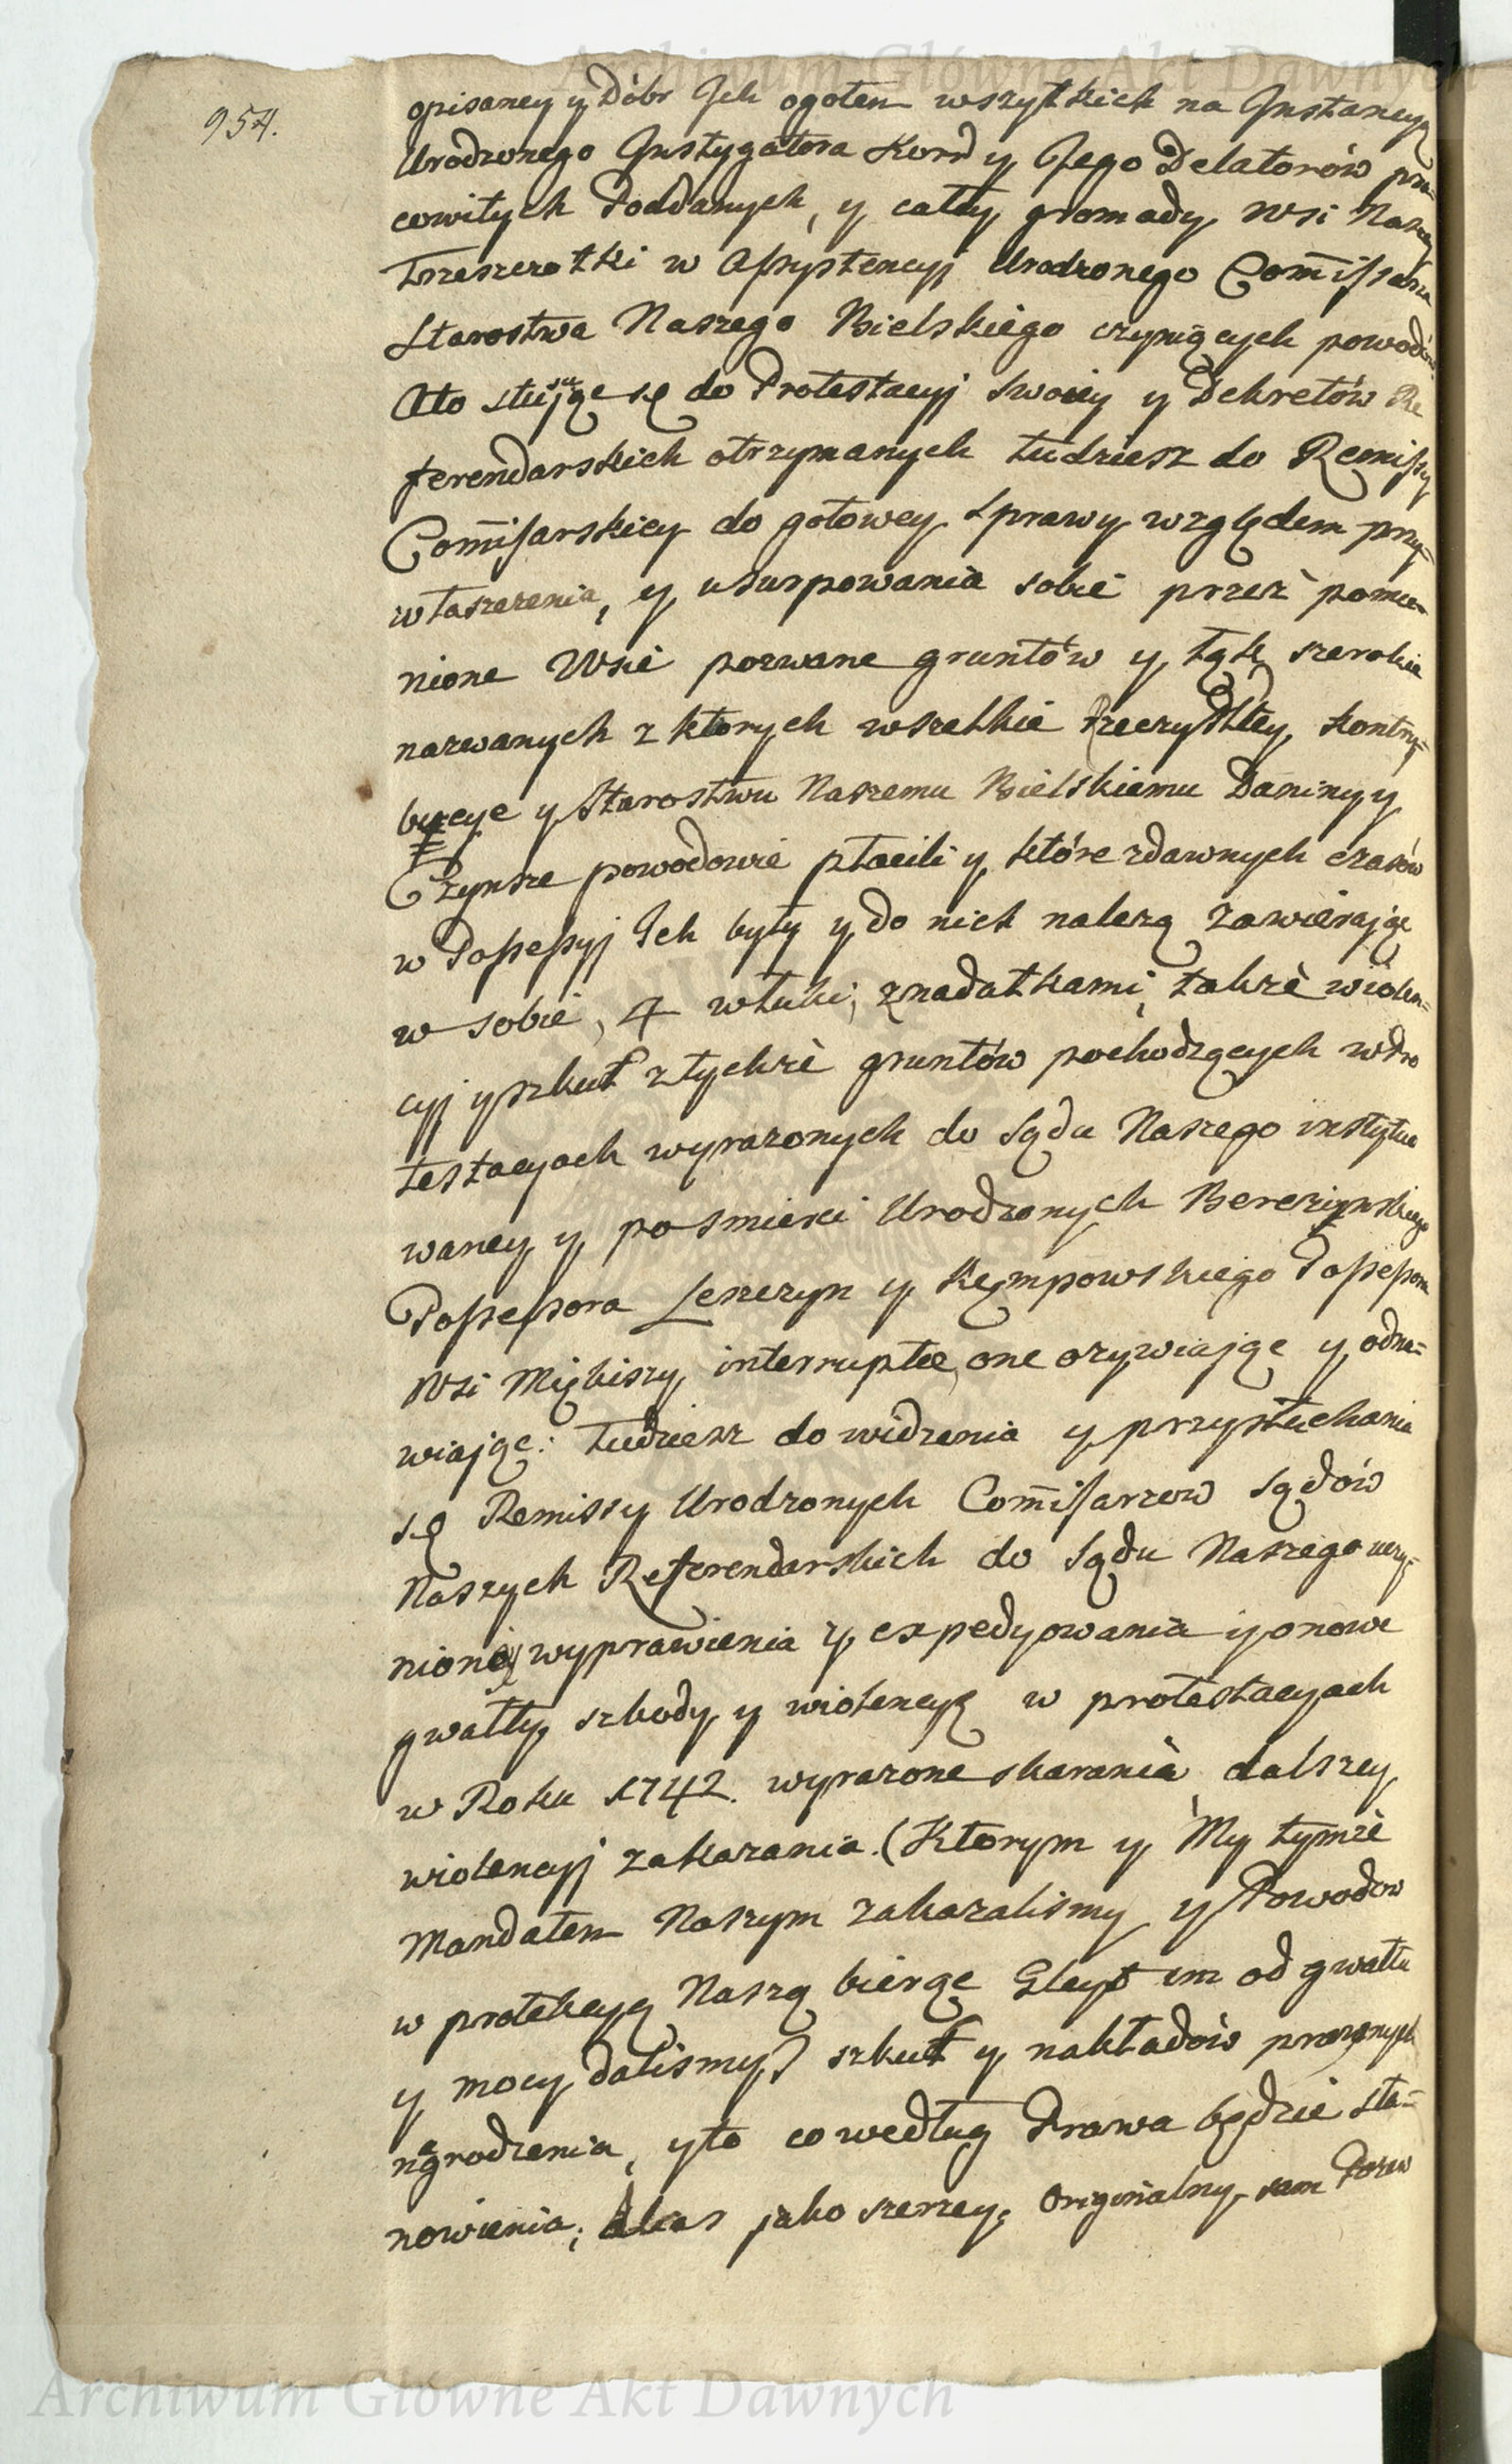 Archiwum Główne Akt Dawnych
954.
opisaney y Dóbr Jch ogołem wszytkich na Jnstancyą
Urodzonego Jnstygatora Kor̃ y Jego Delatorów pra-
cowitych Poddanych, y całey gromady wsi Naszey
Trzeszczotki w Assystencyi Urodzonego Com̃issarza
Starostwa Naszego Bielskiego czyniących powodów
Ato stosuiąc się do Protestacyi swoiey y Dekretów Re
ferendarskich otrzymanych tudziesz do Remissy
Com̃isarskiey do gotowey sprawy względem przy-
właszczenia, y usurpowania sobie przez pomie-
nione Wsie pozwane gruntów y łąk szerokie
nazwanych z ktorych wszelkie Rzeczyptey kontry-
bucye y Starostwu Naszemu Bielskiemu Daniny y
Czynsze powodowie płacili y które zdawnych czasów
w Possessyi Jch były y do nich nalezą zawieraiąc
w sobie, 4 włuki, znadatkami, także wiolen-
cyi y szkut ztychże gruntów pochodzących w Pro
testacyach wyrazonych do sądu Naszego instytuo
waney y po smierci Urodzonych Berezynskiego
Possessora Leszczyn y Kempowskiego Possessora
Wsi Miękiszy interruptæ, one ozywiaiąc y odna-
wiaiąc: tudziesz do widzenia y przysłuchania
się Remissy Urodzonych Com̃isarzow sądów
Naszych Referendarskich do sądu Naszego uczy-
nioney wyprawienia y expedyowania y o nowe
gwałty, szkody, y wiolencye w protestacyach
w Roku 1742. wyrazone skarania dalszey
wiolencyi zakazania. (Ktorym y My tymże
Mandatem Naszym zakazalismy, y Powodow
w protekcyą Naszą biorąc Gleyt im od gwałtu
y mocy dalismy) szkut y nakładów prawnych
nagrodzenia, y to co według Prawa będzie sta-
nowienia; jako szerzey, Originalny sam Pozew
Archiwum Główne Akt Dawnych